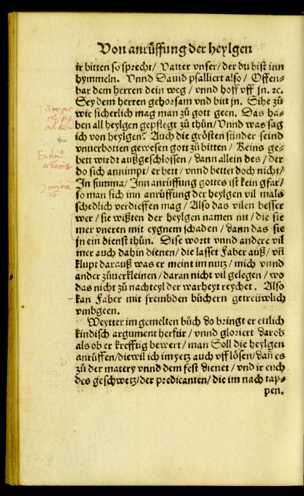 Von anrüffung der heylgen
ir bitten so sprecht / Vatter vnser / der du bist inn
hymmeln. Vnnd Dauid psalliert also / Offen-
bar dem herren dein weg / vnnd hoff vff jn. ꝛc.
Sey dem herren gehorsam vnd bit jn. Sihe zů
wie sicherlich mag man zů gott geen. Das ha-
ben all heylgen gepflegt zů thůn / Vnnd was sag
ich von heylgen? Auch die grösten sünder seind
vnuerbotten gewesen gott zů bitten / Keins ge-
bett wirdt außgeschlossen / Dann allein des / der
do sich annimpt / er bett / vnnd bettet doch nicht /
In summa / Inn anrüffung gottes ist kein gfar /
so man sich inn anrüffung der heylgen vil mals
schedlich verdieffen mag / Also das vilen besser
wer / sie wißten der heylgen namen nit / die sie
mer vneren mit eygnem schaden / dann das sie
jn ein dienst thůn. Dise wortt vnnd andere vil
mer auch dahin dienen / die lasset Faber auß / vñ
klupt darauß was er meint im nutz / mich vnnd
ander zůuerkleinen / daran nicht vil gelegen / wo
das nicht zů nachteyl der warheyt reychet. Also
kan Faber mit frembden büchern getreüwlich
vmbgeen.
Weytter im gemelten bůch do bringt er entlich
kindisch argument herfür / vnnd gloriert darob
als ob er kreffrig bewert / man Soll die heylgen
anrüffen / diewil ich im yetz auch vff lösen / dañ es
zů der matery vnnd dem fest dienet / vnd ir euch
des geschwetz / der predicanten / die im nach tap-
pen.